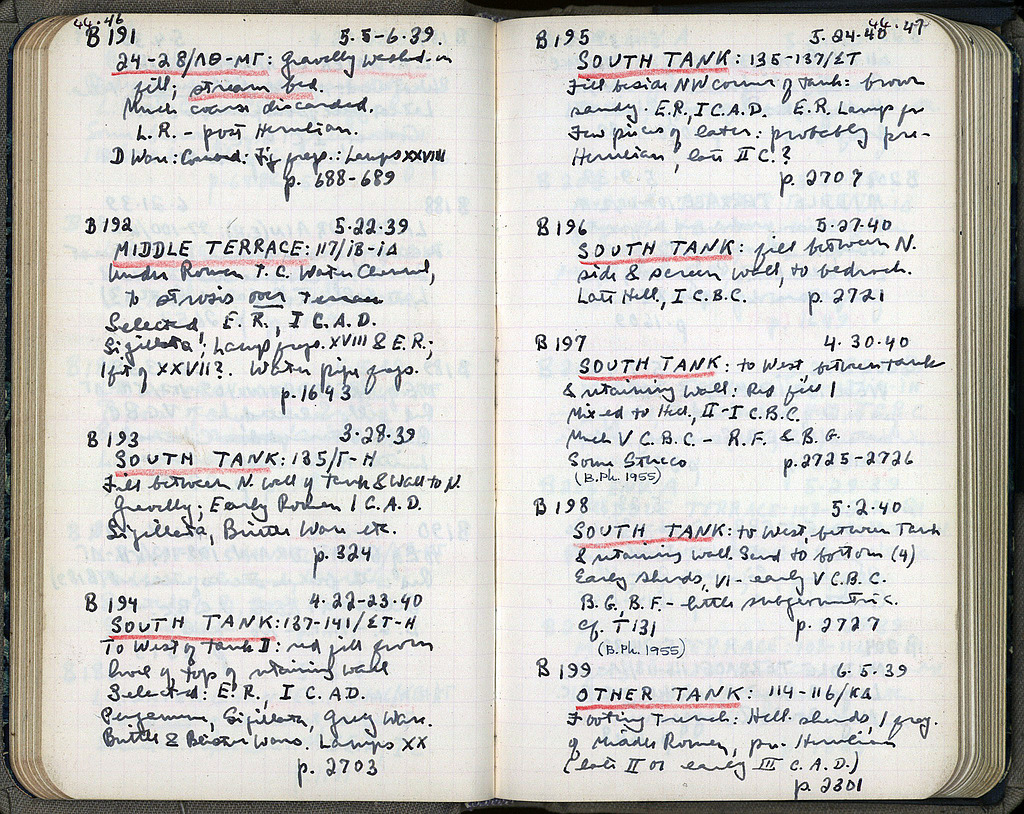 44.46
B 191 5.5-6.39.
24-28/ΛΘ-ΜΓ: Gravelly washed-in
fill; stream bed.
Much coarse discarded.
L.R. - post Herulian.
D Ware: Coarse: Fig frags.: Lamps XXVIII
p. 688-689
B 192 5.22.39
MIDDLE TERRACE: 117/ΙΒ-ΙΑ
Under Roman T.C. Water Channel,
to strosis over terrace
Selected, E.R., I C.A.D.
Sigillata, Lamp frags. XVIII & E.R.;
1 frt of XXVII?. Water pipe frags.
p. 1643
B 193 3.28.39
SOUTH TANK: 135/Γ-Η
Fill between N. wall of tank & wall to N.
Gravelly; Early Roman I C.A.D.
Sigillata, Brittle Ware etc.
p. 324
B 194 4.22-23.40
SOUTH TANK: 137-141/ΣΤ-Η
To West of Tank II: red fill from
level of top of retaining wall
Selected: E.R., I C. A.D.
Pergamene, Sigillata, Grey Ware.
Brittle & Blister Wares. Lamps XX
p. 2703
44.47
B 195 5.24.40
SOUTH TANK: 135-137/ΣΤ
Fill beside NW corner of tank: brown
sandy. E.R., I C.A.D. E.R. Lamp fr
Few pieces of later: probably pre-
Herulian, late II C.?
p. 2707
B 196 5.27.40
SOUTH TANK: fill between N.
side & screen wall, to bedrock.
Late Hell., I C.B.C. p. 2721
B 197 4.30.40
SOUTH TANK: to West, between tank
& retaining wall: Red fill 1
Mixed to Hell., II-I C.B.C.
Much V C.B.C. - R.F. & B.G.
Some Stucco p. 2725-2726
(B.Ph. 1955)
B 198 5.2.40
SOUTH TANK: to West, between Tank
& retaining wall. Sand to bottom (4)
Early sherds, VI - early V C.B.C.
B.G., B.F. - little subgeometric.
Cf. T 131 p. 2727
(B.Ph. 1955)
B 199 6.5.39
OTHER TANK: 114-116/ΚΔ
Footing Trench: Hell. sherds, 1 frag.
of Middle Roman, pre-Herulian
(late II or early III C. A.D.)
p. 2301